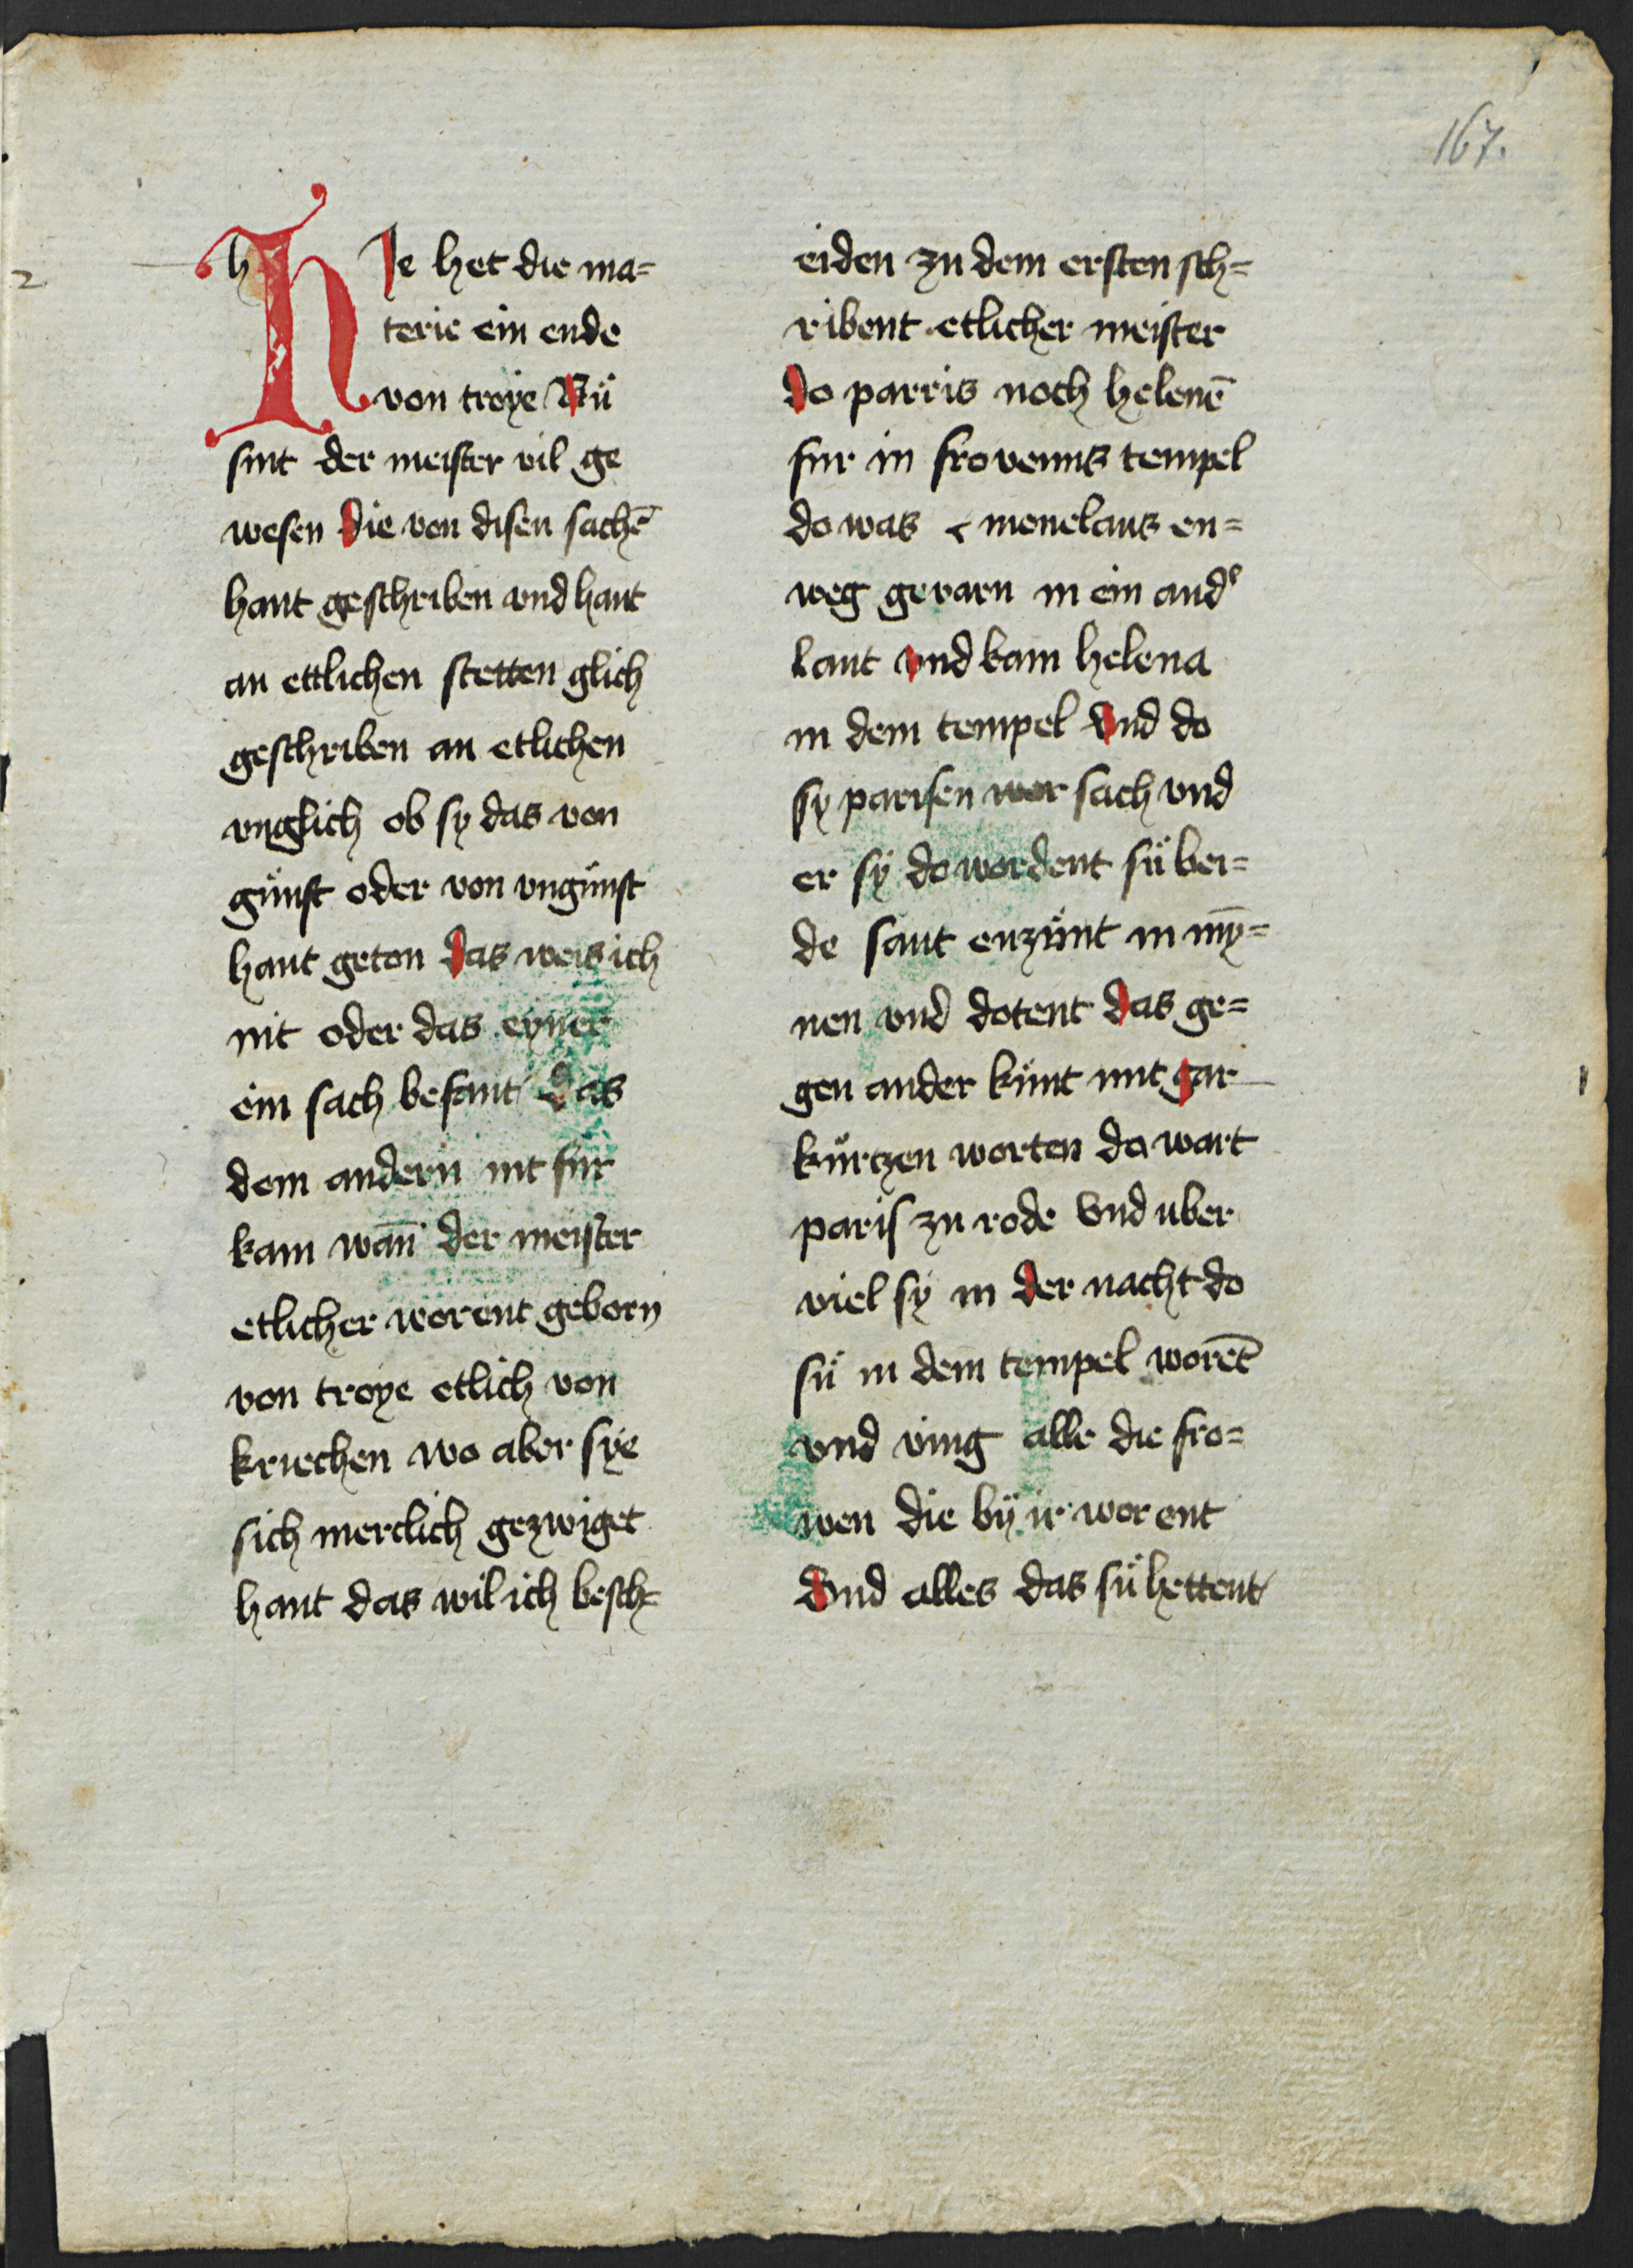 167.
HJe het die ma=
terie ein ende
von troye Nů
sint der meister vil ge
wesen die von disen sachē
hant geschriben vnd hant
an ettlichen stetten glich
geschriben an etlichen
vnglich ob sy das von
günst oder von vngünst
hant geton das weis ich
nit oder das eyner
ein sach befant das
dem andern nit für
kam wañ der meister
etlicher worent geborn
von troye etlich von
kriechen wo aber sÿe
sich merclich gezwiget
hant das wil ich besch=
eiden zu dem ersten sch=
ribent etlicher meister
do parris noch helenē
fur in fro venus tempel
do was menelaus en=
weg gevarn in ein and'
lant vnd kam helena
in dem tempel vnd do
sÿ parisen wor sach vnd
er sÿ do wordent sü bei=
de sant enzünt in mỹ=
nen vnd dotent das ge=
gen ander künt mit gar
kürtzen worten do wart
paris zu rode vnd uber
viel sÿ in der nacht do
sü in dem tempel worēt
vnd ving alle die fro=
wen die bÿ ir worent
vnd alles das sü hettent